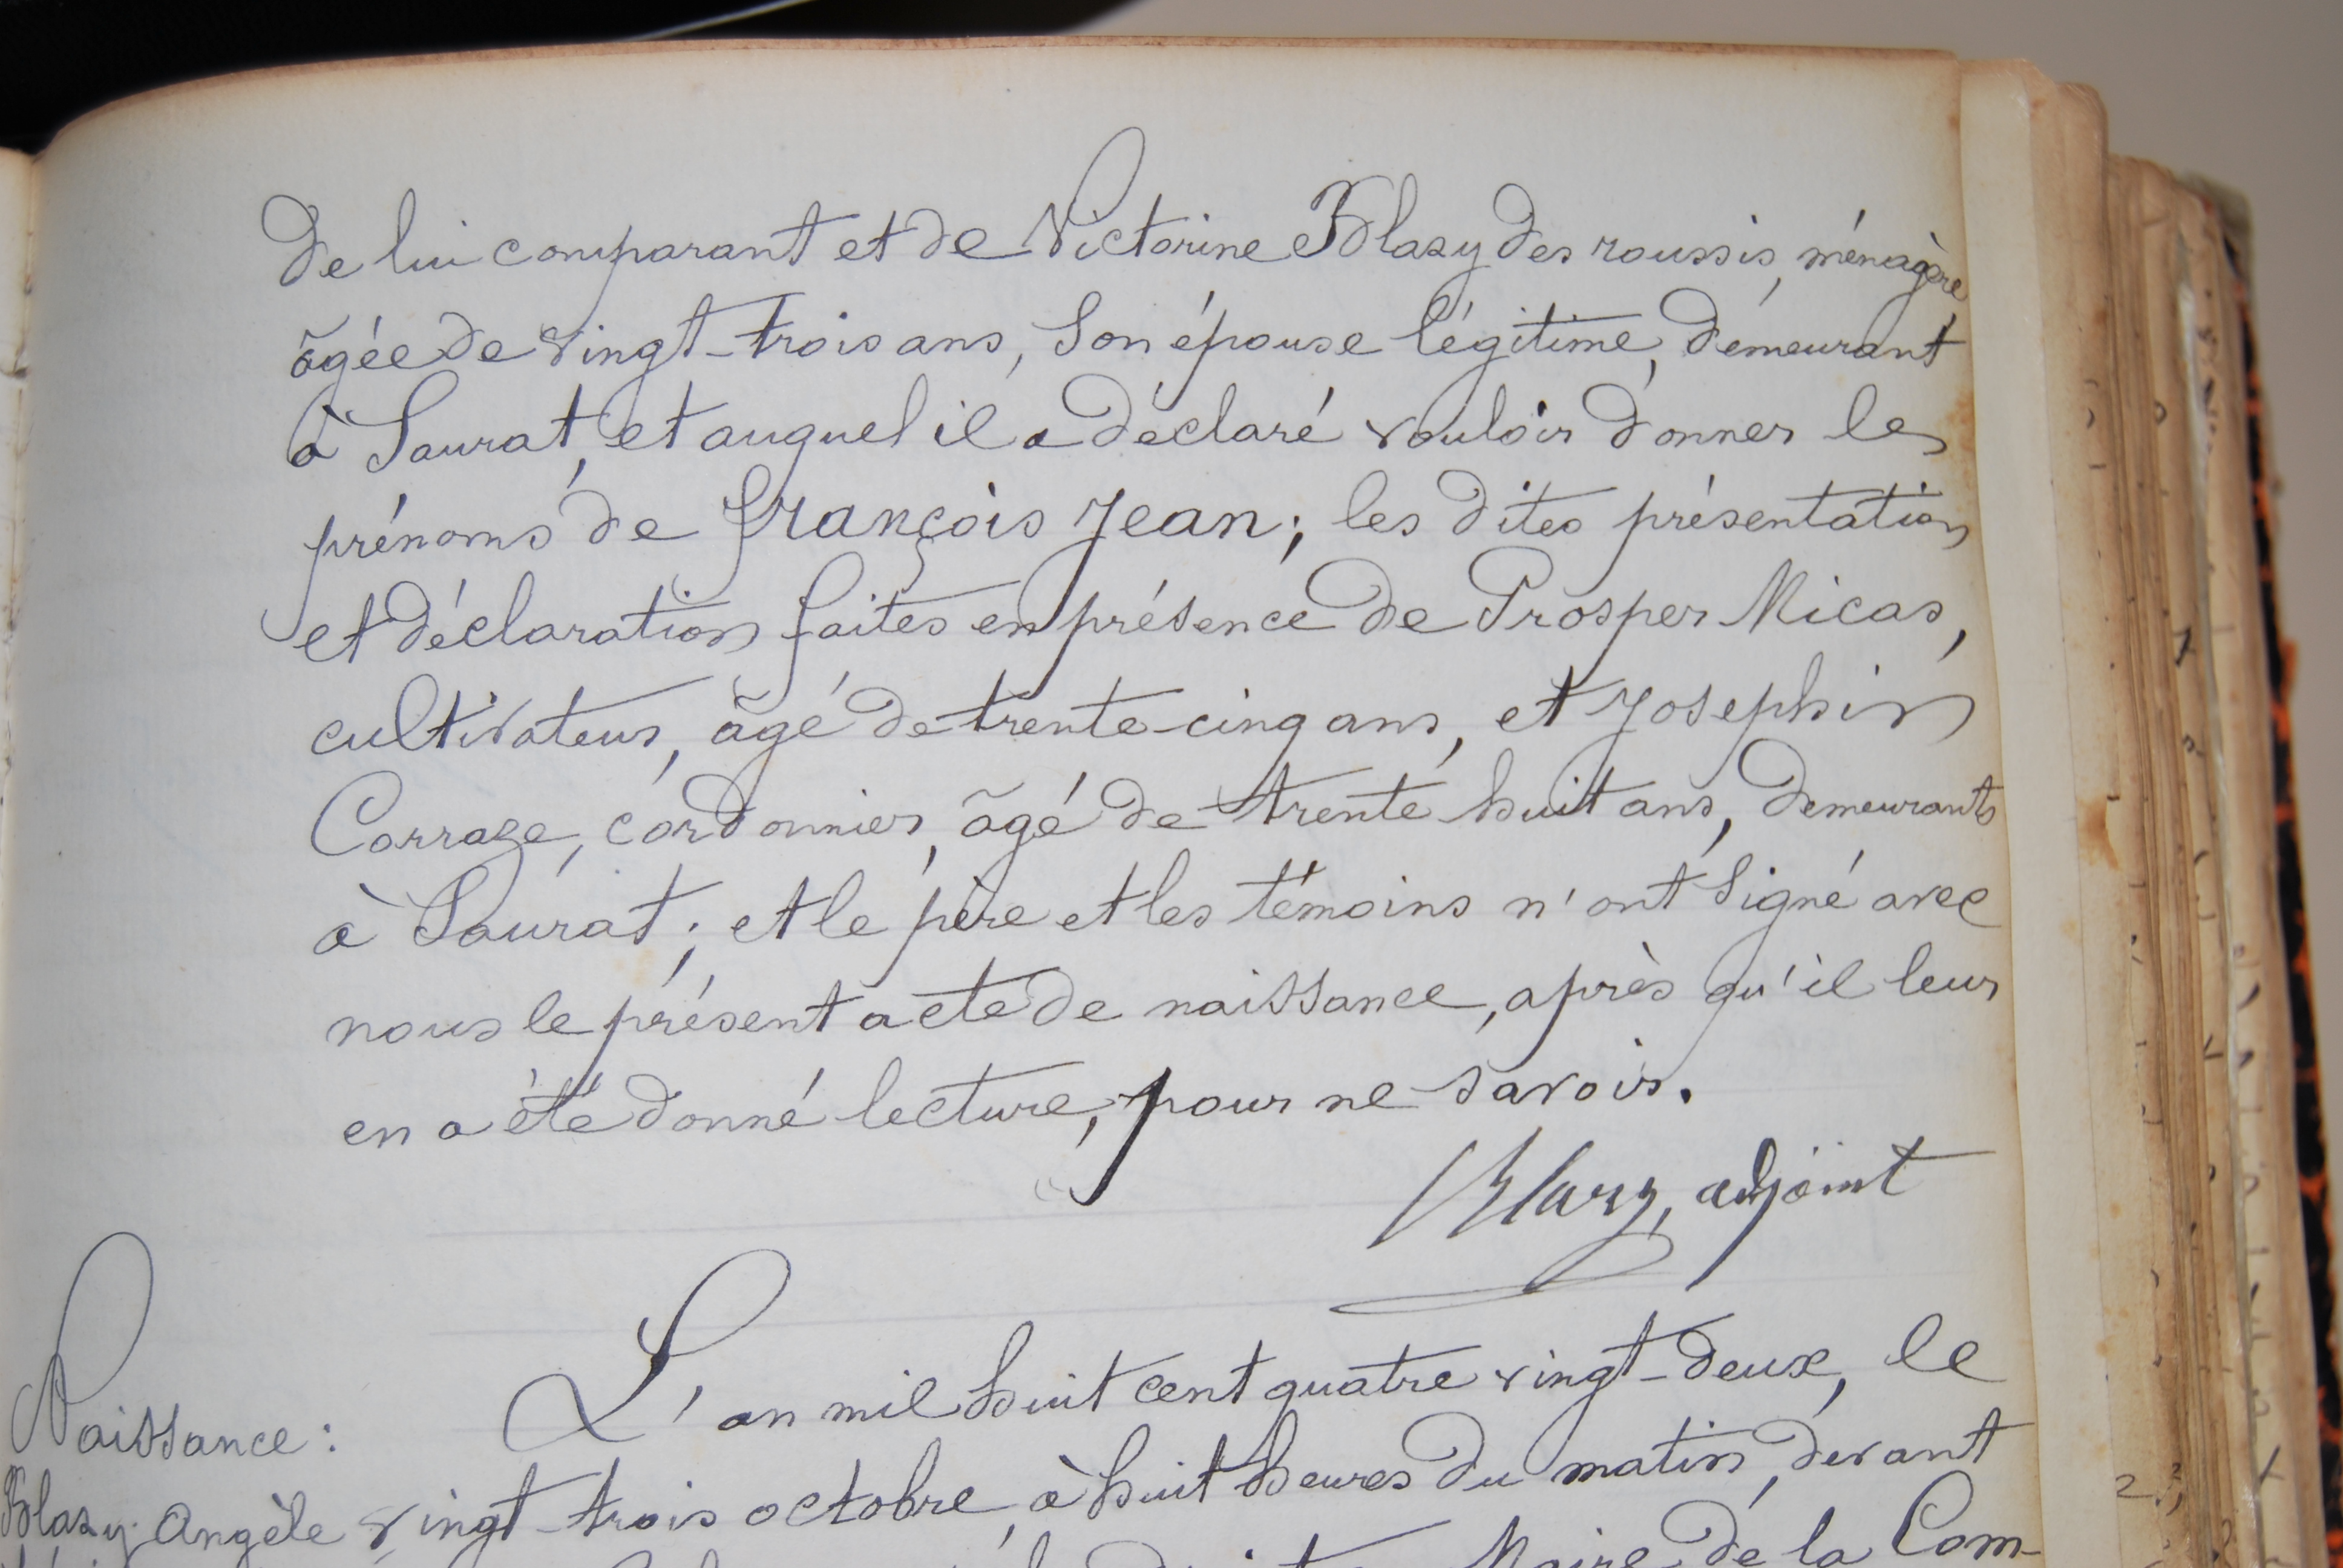 De lui comparant et de Victorine Blazy des roussis, ménagère,
âgée de vingt-trois ans, Son épouse légitime, demeurant
à Saurat, et auquel il a déclaré vouloir donner les
prénoms de François Jean; les dites présentation
et déclaration faites en présence de Prosper Micas,
cultivateur, âgé de trente-cinq ans, et Josephin
Carraze, cordonnier, âgé de trente huit ans, demeurants
à Saurat; et le père et les témoins n'ont signé avec
nous le présent acte de naissance, après qu'il leur
en a été donné lecture, pour ne savoir.
Blazy, adjoint
L'an mil huit cent quatre vingt-deux, le
Naissance:
vingt-trois octobre, à huit heures du matin, devant
Blazy Angèle
Maire de la Com-